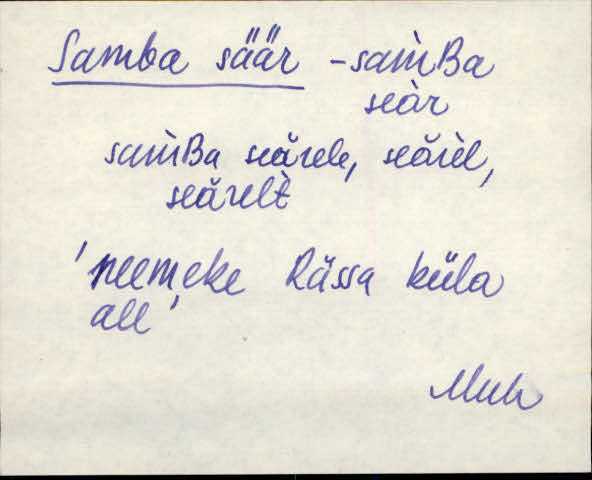 Samba säär - sam̀Ba
seàr
sam̀Ba seărele, seărèl,
seărelt̀
'neemeke Rässa küla
all'
Muh